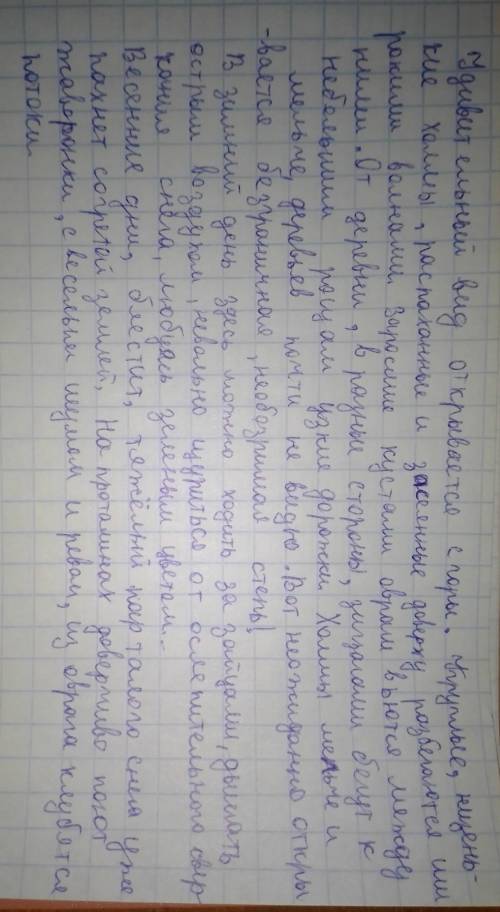 Удивительный вид открывается с горы. Круглые, низень-
кие холмы, распаханные и засеянные доверху разбегаются ши
рокими волнами. Заросшие кустами овраги вьются между
ними. От деревни, в разные стороны, зигзагами бегут к
небольшим рощам узкие дорожки. Холмы мельче и
мельче, деревьев почти не видно. Вот неожиданно откры
-вается безграничная, необозримая степь!
В зимний день здесь можно ходить за зайцами, дышать
острым воздухом, невольно щуриться от ослепительного свер
кания снега, любуясь зеленым цветом...
Весенние дни, блестит, тяжёлый пар талого снега уже
пахнет согретой землей. На проталинах доверчиво поют
жаворонки, с веселым шумом и ревом, из оврага клубятся
потоки.